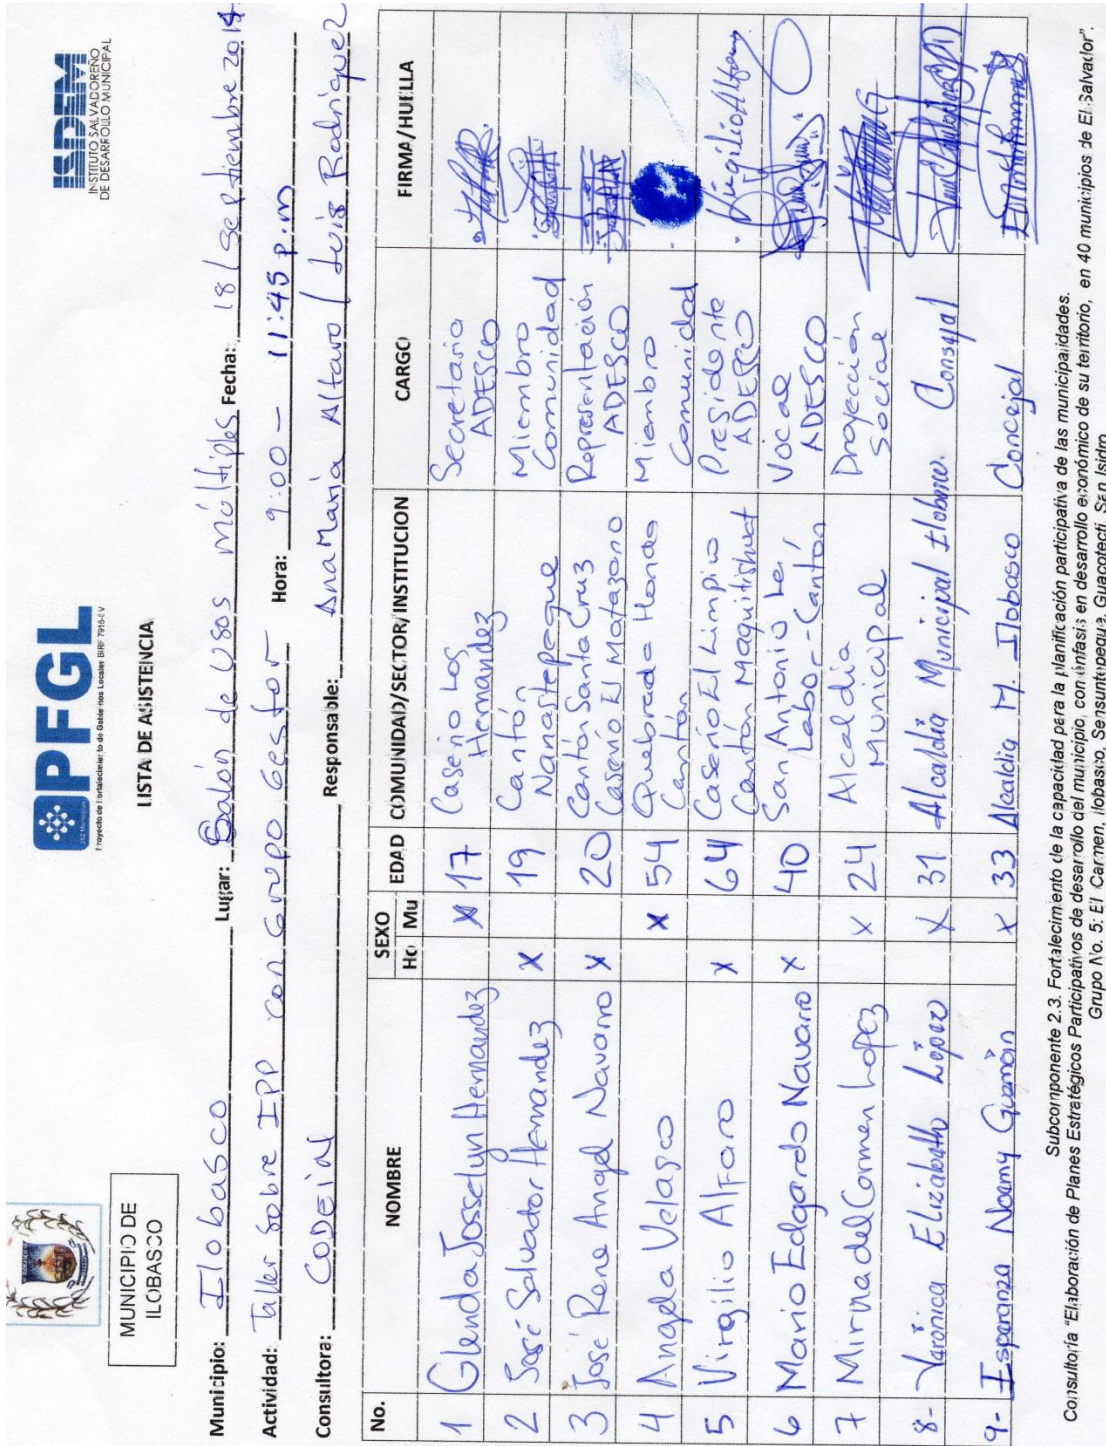 MUNICIPIO DE
ILOBASCO
PFGL
Proyecto de Fortalecimiento de Gobiernos Locales BIRF 7916-SV
ISDEM
INSTITUTO SALVADOREÑO
DE DESARROLLO MUNICIPAL
LISTA DE ASISTENCIA
Municipio: Ilobasco Lugar: Salón de Usos múltiples Fecha: 18/septiembre 2014.
Actividad: Taller sobre IPP con Grupo Gestor Hora: 9:00 - 11:45 p.m
Consultora: CODEIN Responsable: Ana María Alfaro / Luis Rodriguez
No. NOMBRE SEXO EDAD COMUNIDAD/SECTOR/INSTITUCION CARGO FIRMA/HUELLA
Ho Mu
1 Glenda Josselyn Hernandez X 17 Caserio Los Hernandez Secretaria ADESCO
2 José Salvador Hernandez X 19 Cantón Nanastepeque Miembro Comunidad
3 José Rene Angel Navarro X 20 Cantón Santa Cruz Caserío El Matazano Representación ADESCO
4 Angela Velasco X 54 Quebrada Honda Cantón Miembro Comunidad
5 Virgilio Alfaro X 64 Caserío El Limpio Cantón Maquilishuat Presidente ADESCO Virgilio Alfaro
6 Mario Edgardo Navarro X 40 San Antonio Lei Labor-Cantón Vocal ADESCO
7 Mirna del Carmen Lopez X 24 Alcaldia Municipal Proyección Social
8- Veronica Elizabeth López X 31 Alcaldia Municipal Ilobasco. Consejal
9- Esperanza Noemy Guzmán X 33 Alcaldia M. Ilobasco Concejal
Subcomponente 2.3. Fortalecimiento de la capacidad para la planificación participativa de las municipalidades.
Consultoría "Elaboración de Planes Estratégicos Participativos de desarrollo del municipio, con énfasis en desarrollo económico de su territorio, en 40 municipios de El Salvador".
Grupo No. 5: El Carmen, Ilobasco, Sensuntepeque, Guacotecti, San Isidro